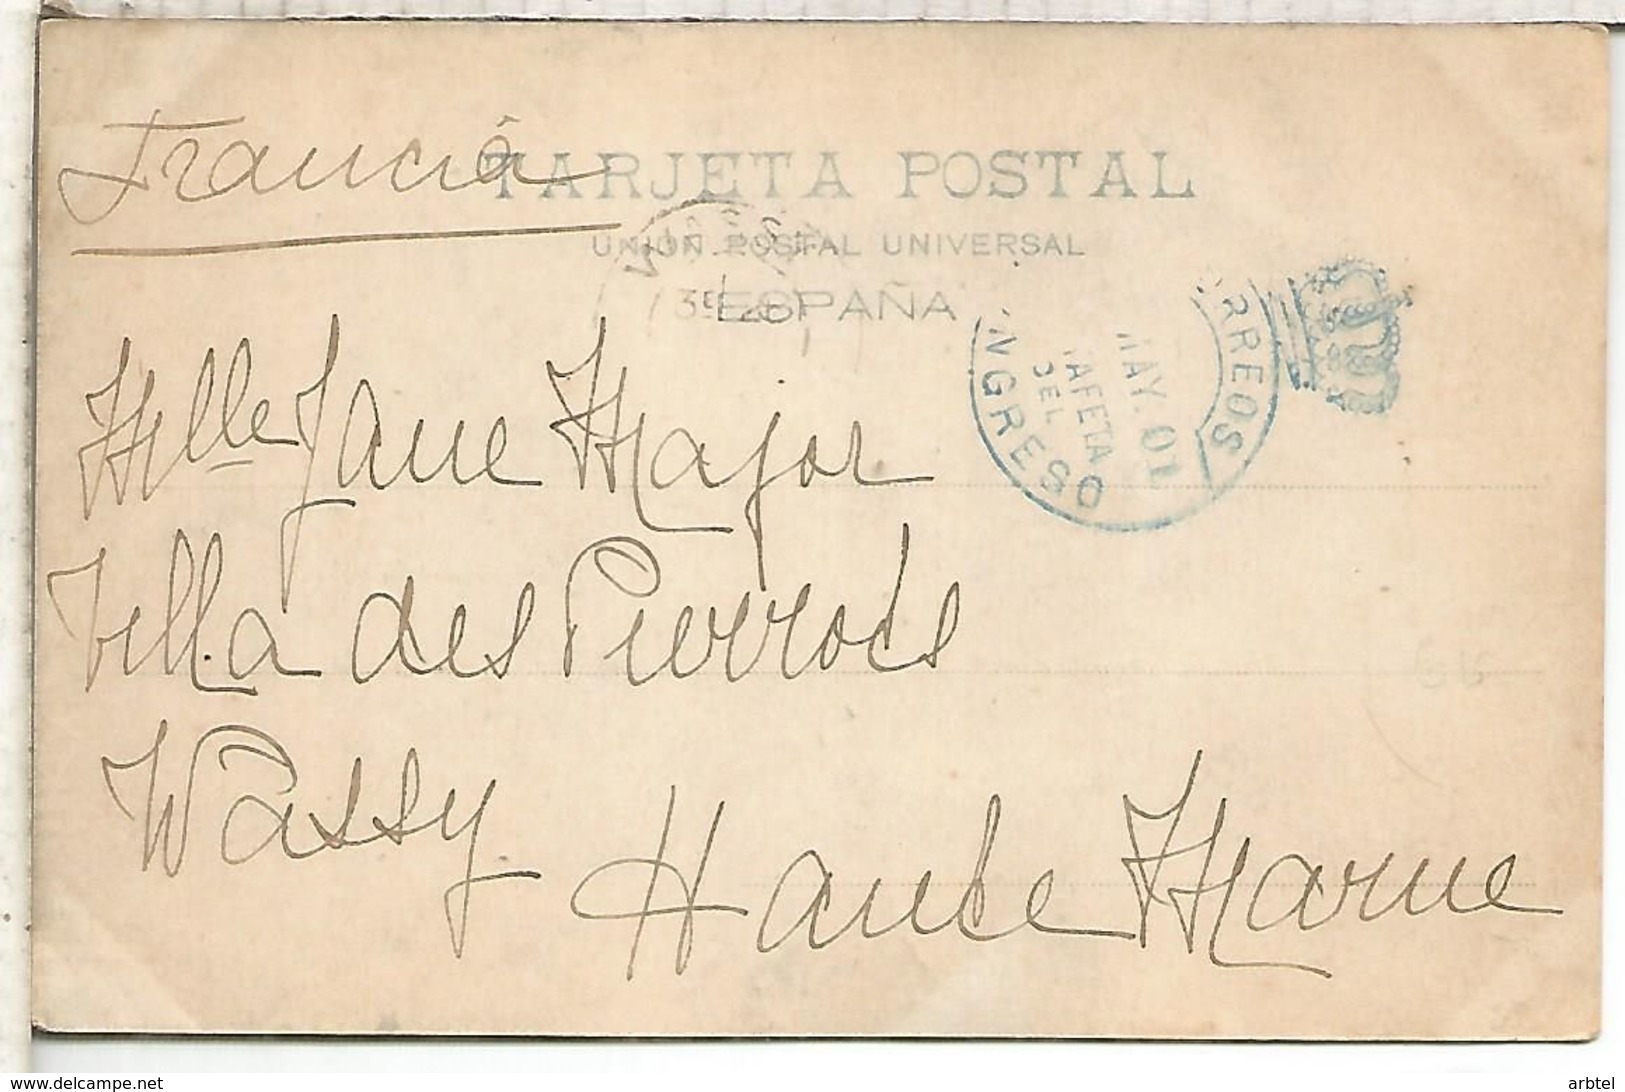 Francia
TARJETA POSTAL
UNION POSTAL UNIVERSAL
ESPAÑA
CORREOS
MAY.01
ESTAFETA
DEL
CONGRESO
Melle Jane Major
Villa des Pierrots
Wassy
Haute Marne
www.delcampe.net
arbtel